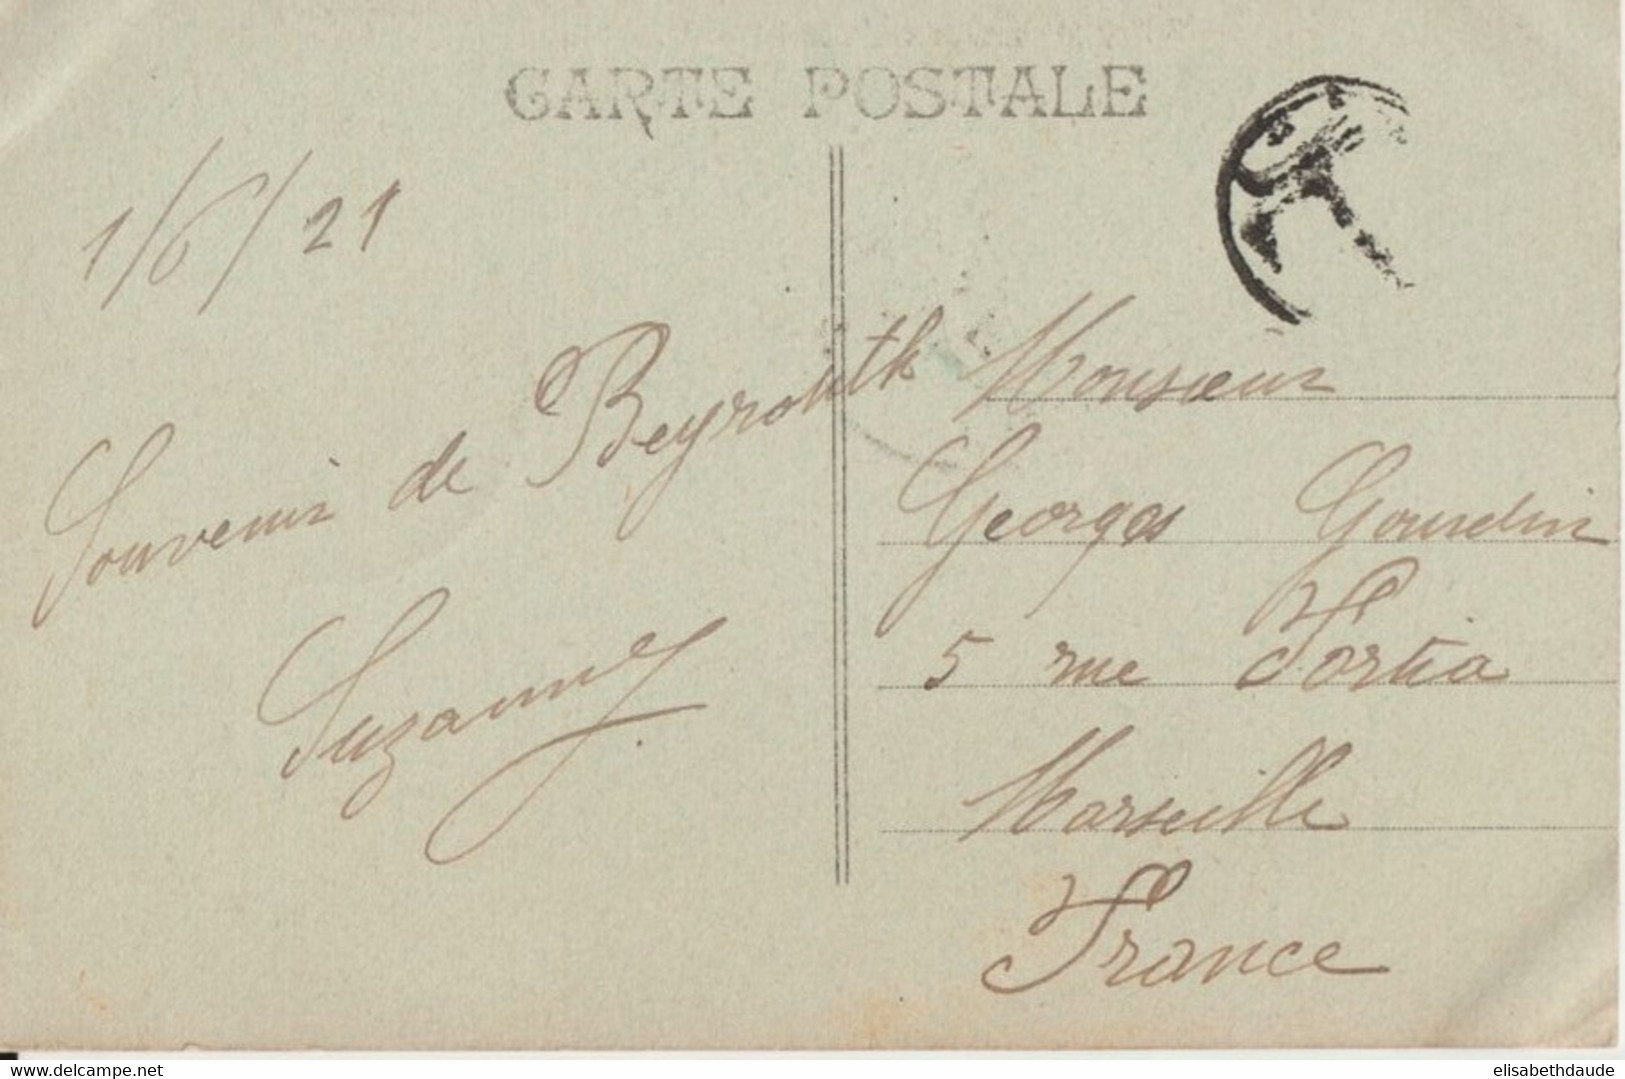 CARTE POSTALE
1/6/21
Souvenir de Beyrouth
Suzanne
Monsieur
Georges Gourdin
5 rue Fortia
Marseille
France
T
website: www.delcampe.net
elisabethdaude